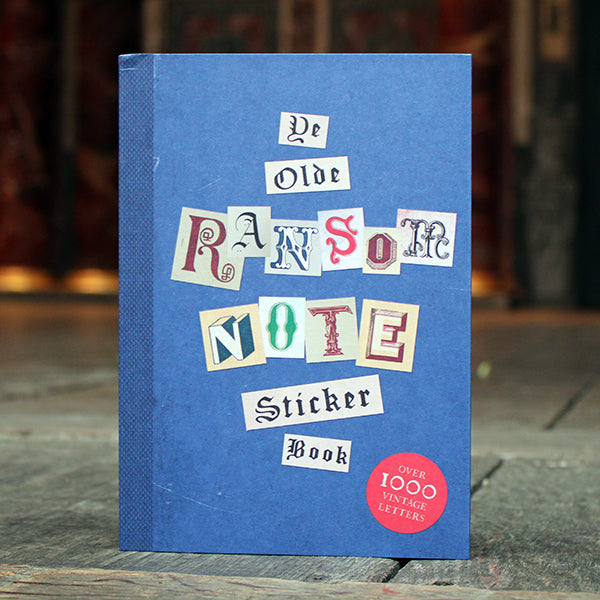 Ye
Olde
RANSOM
NOTE
Sticker
Book
OVER
1000
VINTAGE
LETTERS